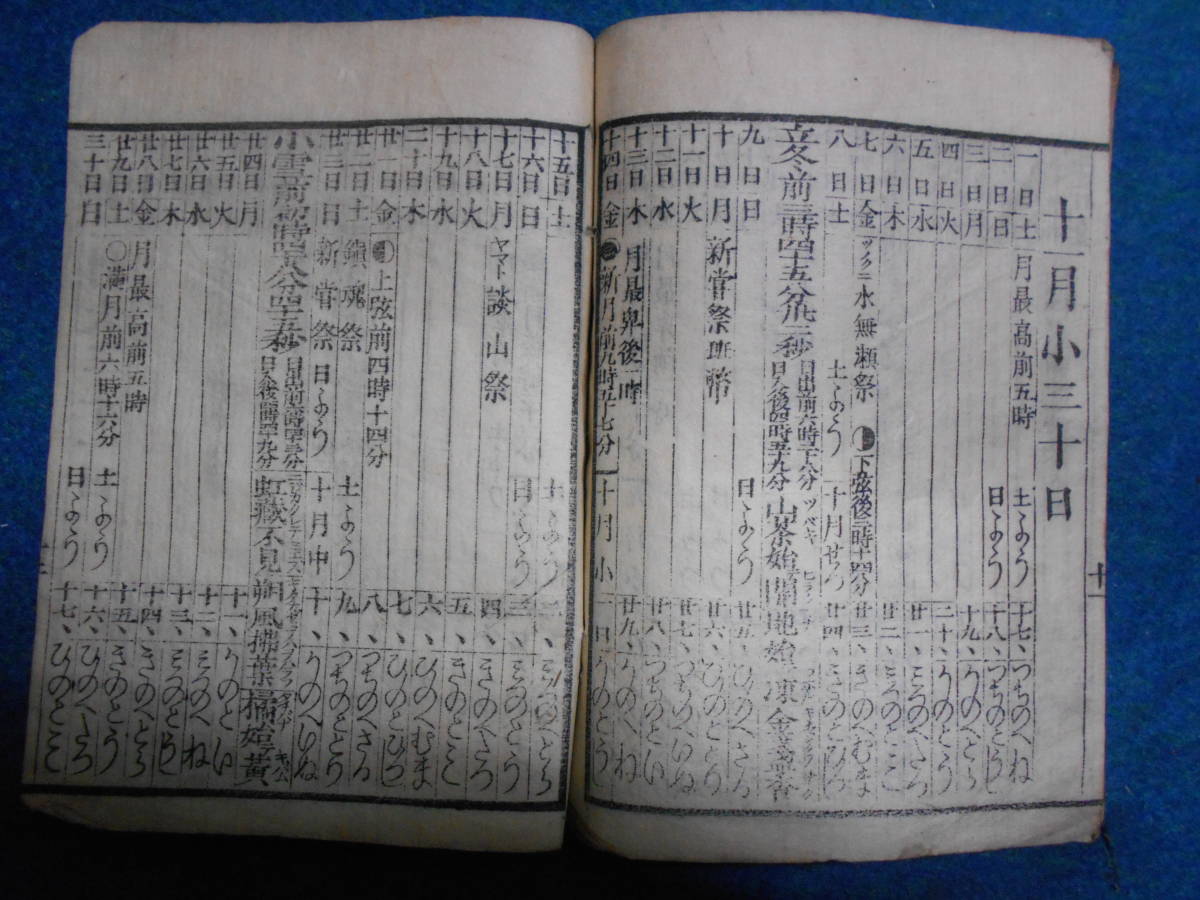 十一月小三十日
一日土 月最高前五時 土ようゟ 十七、つちのへね
二日日 日よう 十八、つちのとうし
三日月 十九、かのへとら
四日火 二十、かのとう
五日水 廿一、みづのへたつ
六日木 廿二、みづのとみ
七日金 水無瀬祭 下弦後三時十四分 廿三、きのへむま
八日土 土よう 十月せつ 廿四、きのとひつし
立冬前 三時四十五分 秒 日出前六時三十分 日入後四時五十九分 山茶始開 地始凍 金盞香
九日日 日よう 廿五、ひのへさる
十日月 新嘗祭班幣 廿六、ひのととり
十一日火 廿七、つちのへいぬ
十二日水 廿八、つちのとい
十三日木 月最卑後一時 廿九、かのへね
十四日金 新月前九時五十七分 十月小 一日 かのとうし
十五日土 土よう 二、みづのへとら
十六日日 日よう 三、みづのとう
十七日月 ヤマト 談山祭 四、きのへたつ
十八日火 五、きのとみ
十九日水 六、ひのへむま
二十日木 七、ひのとひつし
廿一日金 上弦前四時十四分 八、つちのへさる
廿二日土 鎮魂祭 土よう 九、つちのととり
廿三日日 新嘗祭 日よう 十月中 十、かのへいぬ
小雪前 時 分 秒 日出前 日入後四時四十九分 虹蔵不見 朔風払葉 橘始黄
廿四日月 十一、かのとい
廿五日火 十二、みづのへね
廿六日水 十三、みづのとうし
廿七日木 十四、きのへとら
廿八日金 月最高前五時 十五、きのとう
廿九日土 満月前六時十六分 土よう 十六、ひのへたつ
三十日日 日よう 十七、ひのとみ